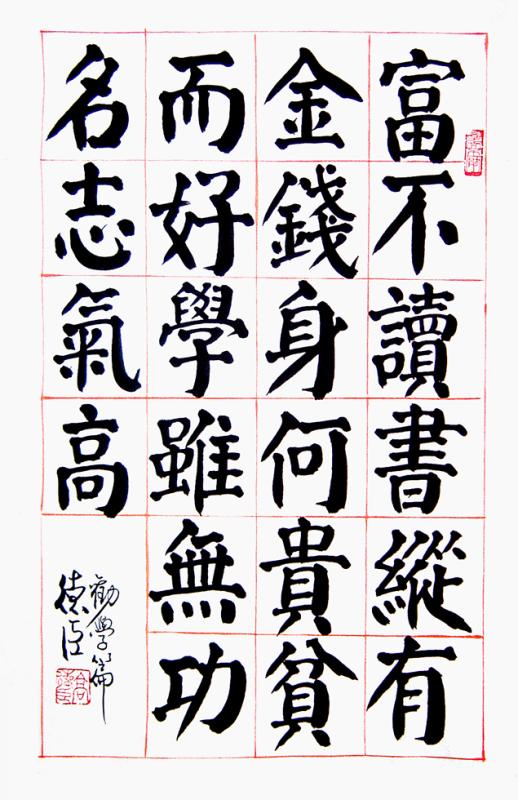 富不讀書縱有
金錢身何貴貧
而好學雖無功
名志氣高
勸學篇
德臣